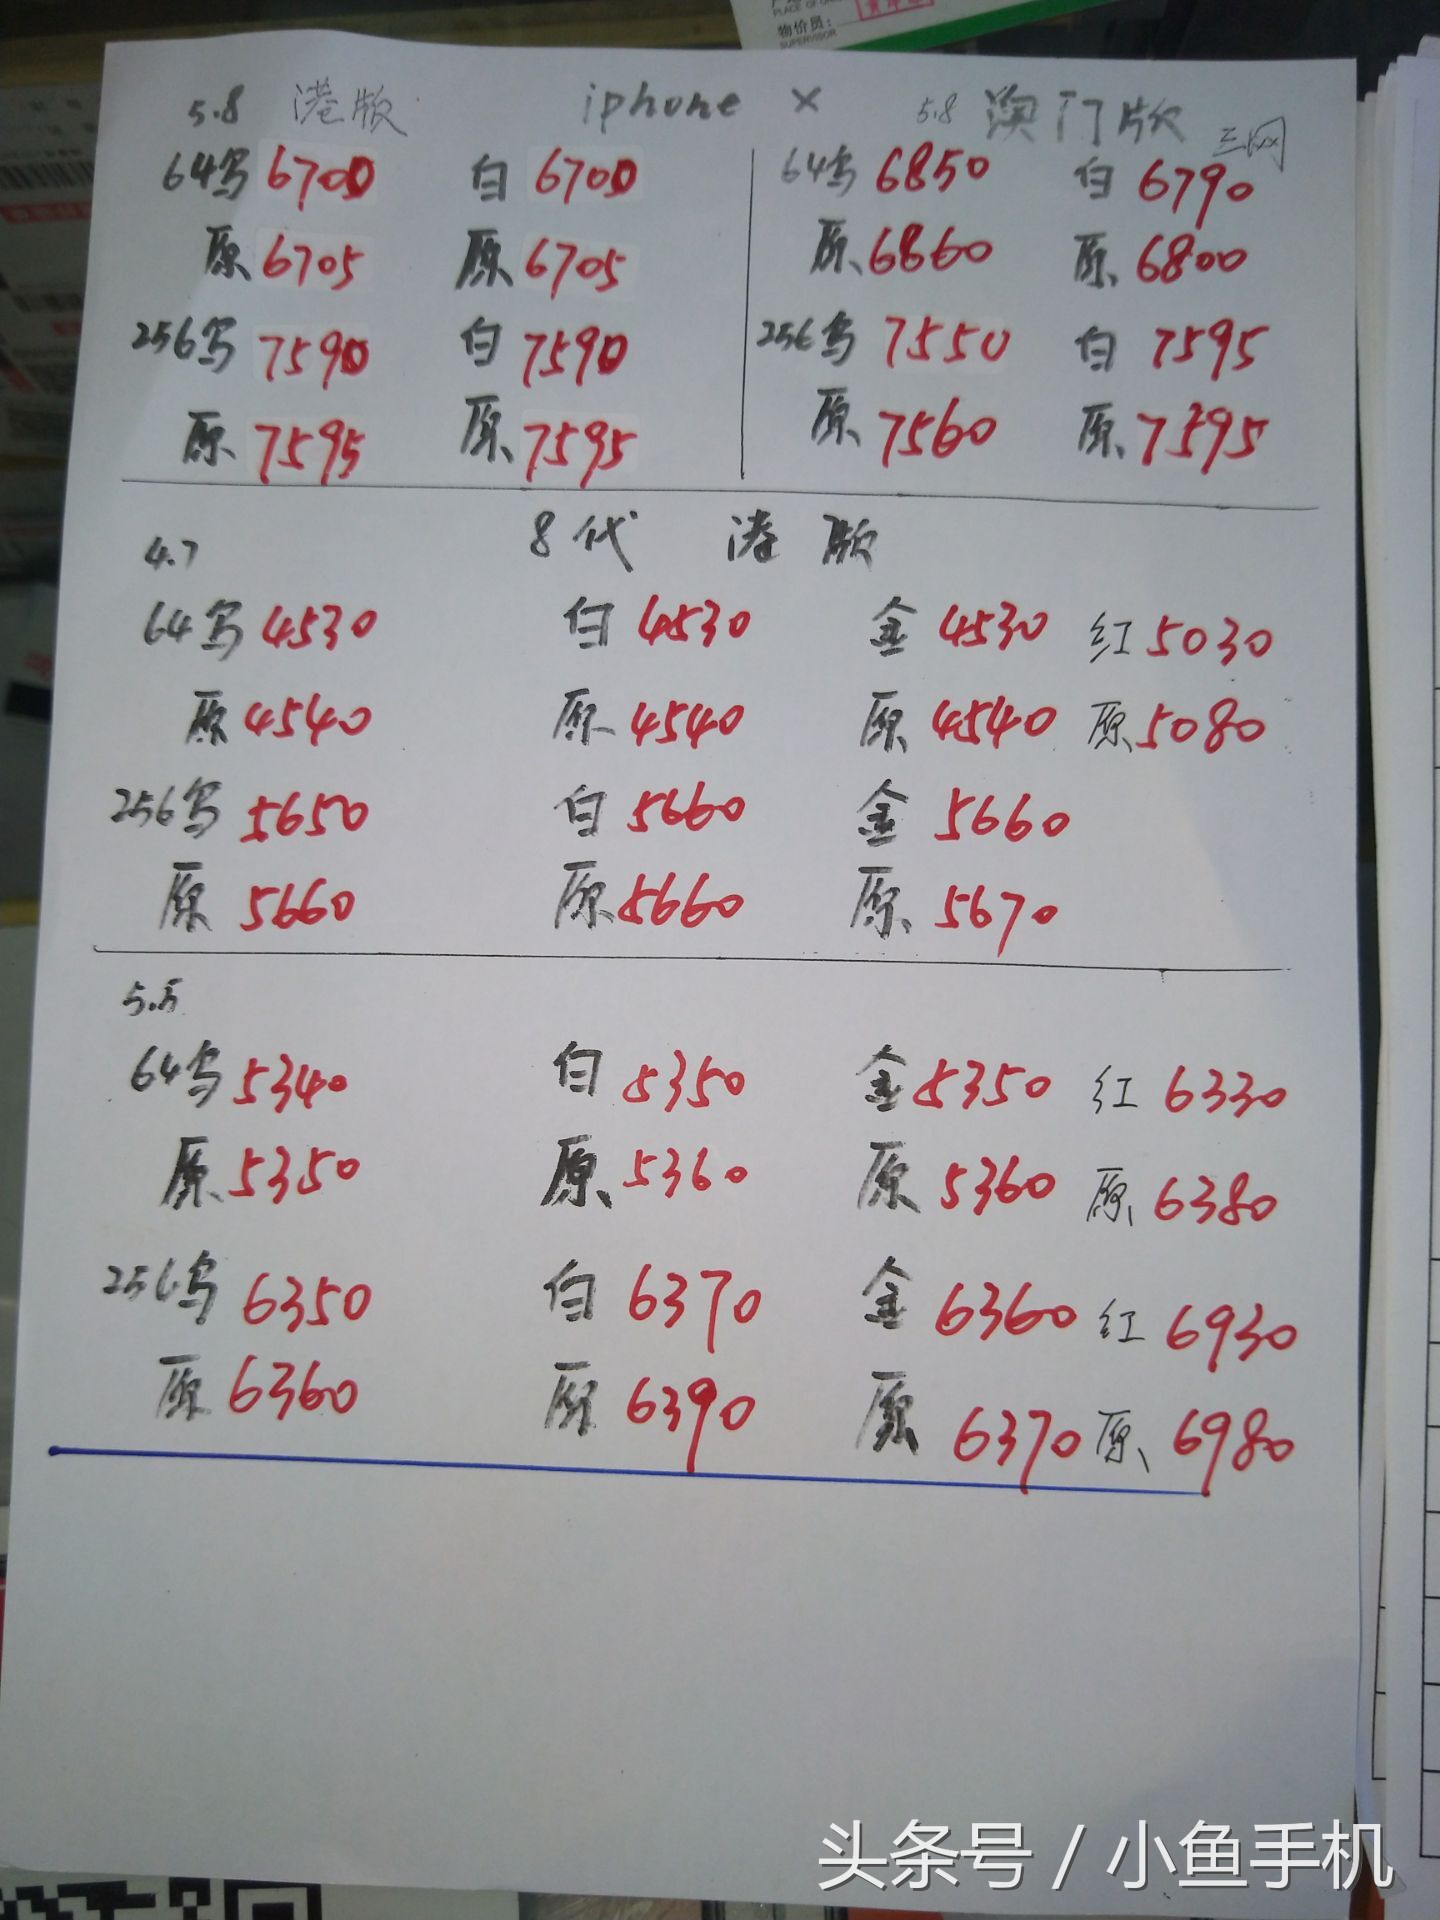 PLACE OF
物价员：
SUPERVISOR
5.8 港版 iphone X 5.8 澳门版 三网
64乌 6700 白 6700 64乌 6850 白 6790
原 6705 原 6705 原 6860 原 6800
256乌 7590 白 7590 256乌 7550 白 7595
原 7595 原 7595 原 7560 原 7595
4.7 8代 港版
64乌 4530 白 4530 金 4530 红 5030
原 4540 原 4540 原 4540 原 5080
256乌 5650 白 5660 金 5660
原 5660 原 5660 原 5670
5.5
64乌 5340 白 5350 金 5350 红 6330
原 5350 原 5360 原 5360 原 6380
256乌 6350 白 6370 金 6360 红 6930
原 6360 原 6390 原 6370 原 6980
头条号 / 小鱼手机